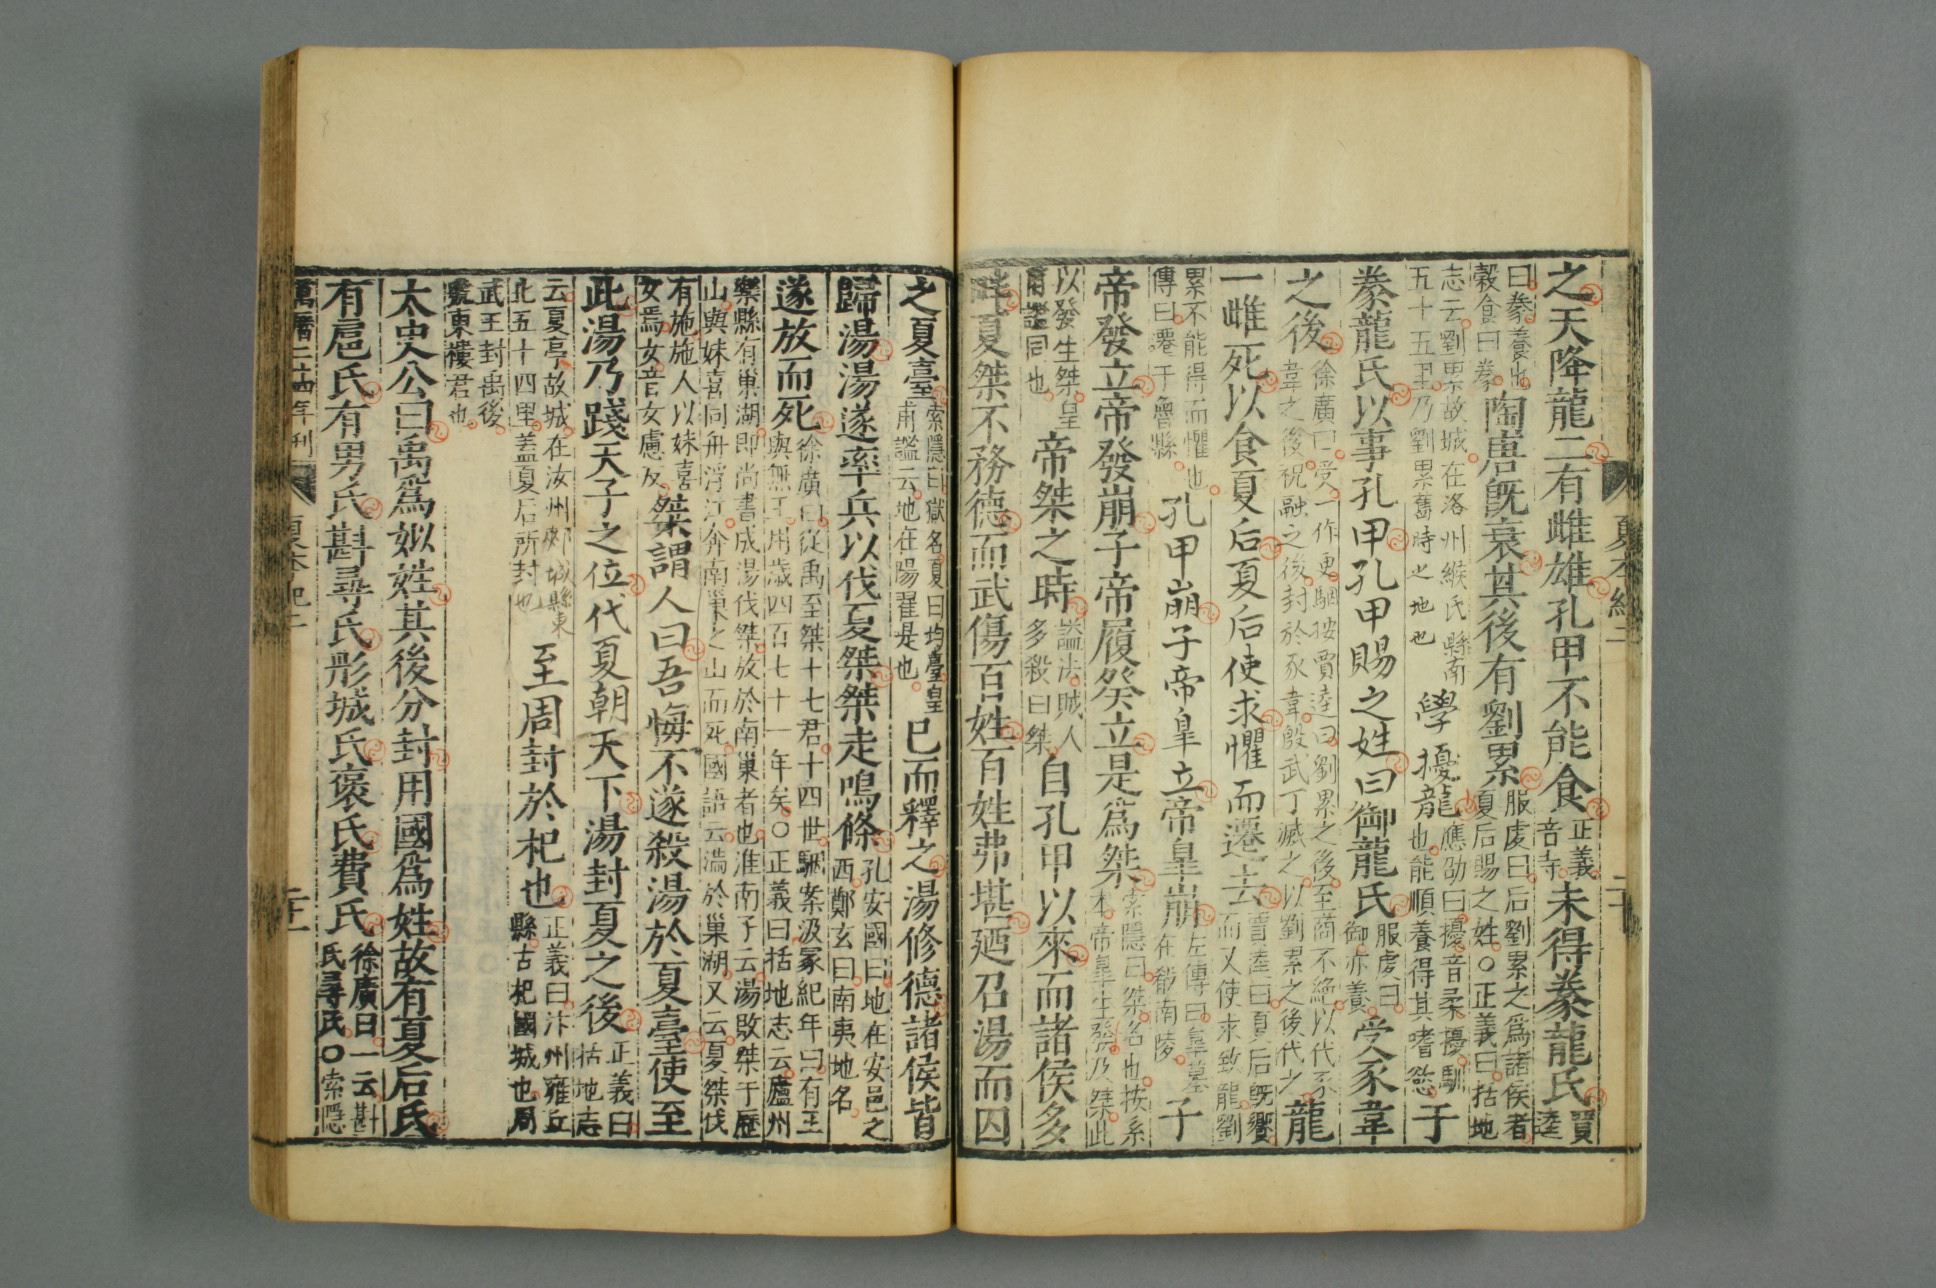 夏本紀二 二十
之天降龍二有雌雄孔甲不能食正義音寺未得豢龍氏賈逵
曰豢養也穀食曰豢陶唐旣衰其後有劉累服虔曰后劉累之爲諸侯者夏后賜之姓○正義曰括地
志云劉累故城在洛州緱氏縣南五十五里乃劉累舊時之地也學擾龍應劭曰擾音柔擾馴也能順養得其嗜慾于
豢龍氏以事孔甲孔甲賜之姓曰御龍氏服虔曰御亦養受豕韋
之後徐廣曰受一作更駰按賈逵曰劉累之後至商不絶以代豕韋之後祝融之後封於豕韋殷武丁滅之以劉累之後代之龍
一雌死以食夏后夏后使求懼而遷去賈逵曰夏后旣饗而又使求致龍劉
累不能得而懼也傳曰遷于魯縣孔甲崩子帝皐立帝皐崩左傳曰皐墓在殽南陵子
帝發立帝發崩子帝履癸立是爲桀索隱曰桀名也按系本帝皐生發及桀此
以發生桀皇甫謐同也帝桀之時謚法賊人多殺曰桀自孔甲以來而諸侯多
畔夏桀不務德而武傷百姓百姓弗堪廼召湯而囚
之夏臺索隱曰獄名夏曰均臺皇甫謐云地在陽翟是也已而釋之湯修德諸侯皆
歸湯湯遂率兵以伐夏桀桀走鳴條孔安國曰地在安邑之西鄭玄曰南夷地名
遂放而死徐廣曰從禹至桀十七君十四世駰案汲冢紀年曰有王與無王用歲四百七十一年矣○正義曰括地志云廬州
巢縣有巢湖即尚書成湯伐桀放於南巢者也淮南子云湯敗桀于歷山與妹喜同舟浮江奔南巢之山而死國語云滿於巢湖又云夏桀伐
有施施人以妹喜女焉女音女慮反桀謂人曰吾悔不遂殺湯於夏臺使至
此湯乃踐天子之位代夏朝天下湯封夏之後正義曰括地志
云夏亭故城在汝州郟城縣東北五十四里蓋夏后所封也至周封於杞也正義曰汴州雍丘縣古杞國城也周
武王封禹後號東樓君也
太史公曰禹爲姒姓其後分封用國爲姓故有夏后氏
有扈氏有男氏斟尋氏彤城氏褒氏費氏徐廣曰一云斟氏尋氏○索隱
萬曆二十四年刊 夏本紀二 二十一